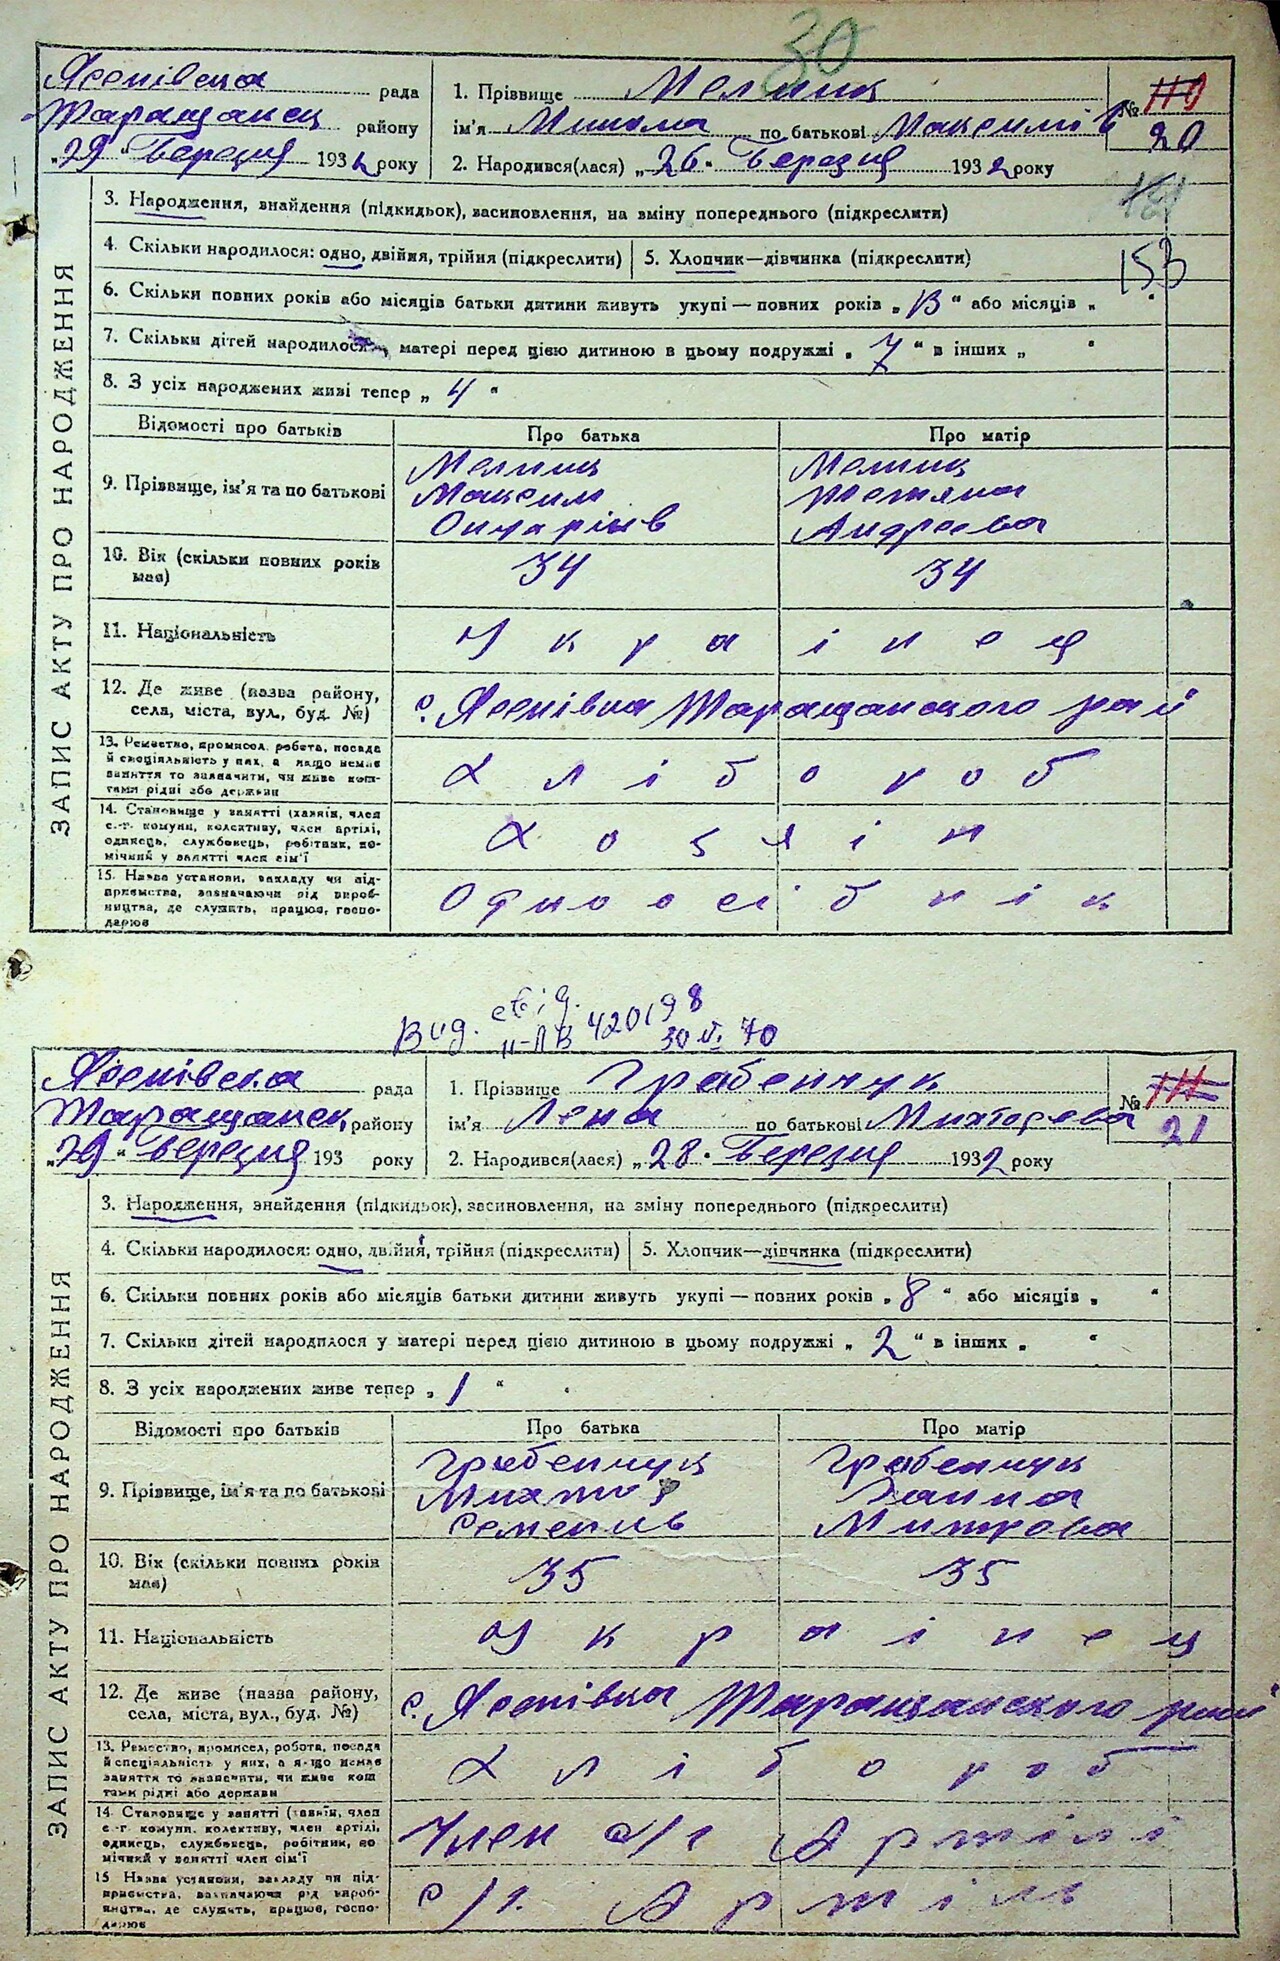 30
Лєсківська рада
Таращанськ району
„29“ Березня 1932 року
1. Прізвище Мелниц
ім'я Микола по батькові Максимів
2. Народився(лася) „26“ Березня 1932 року
№ 110
20
153
ЗАПИС АКТУ ПРО НАРОДЖЕННЯ
3. Народження, знайдення (підкидьок), засиновлення, на зміну попереднього (підкреслити)
4. Скільки народилося: одно, двійня, трійня (підкреслити)
5. Хлопчик—дівчинка (підкреслити)
6. Скільки повних років або місяців батьки дитини живуть укупі — повних років „13“ або місяців „
7. Скільки дітей народилося матері перед цією дитиною в цьому подружжі „7“ в інших „ “
8. З усіх народжених живі тепер „4“
Відомості про батьків
Про батька
Про матір
9. Прізвище, ім'я та по батькові
Мелниц
Максим
Мелниц
Тетяна
Андреєва
10. Вік (скільки повних років має)
34
34
11. Національність
Українец
12. Де живе (назва району, села, міста, вул., буд. №)
с. Таращанского рай
13. Ремество, промисел, робота, посада й спеціяльність у них, а якщо немає заняття то зазначити, чи живе коштами рідні або держави
Хлібороб
14. Становище у занятті (хазяїн, член с.-г. комуни, колективу, член артілі, одинець, службовець, робітник, помічний у занятті член сім'ї
Хозяін
15. Назва установи, закладу чи підприємства, зазначаючи рід виробництва, де служить, працює, господарює
Одноосібнік
Вид. свід.
II-ЛВ 420198
30 VI. 70
рада
Таращанськ. району
„29“ Березня 193 року
1. Прізвище Грабенчук
ім'я Лена по батькові
2. Народився(лася) „28“ Березня 1932 року
№ 111
21
ЗАПИС АКТУ ПРО НАРОДЖЕННЯ
3. Народження, знайдення (підкидьок), засиновлення, на зміну попереднього (підкреслити)
4. Скільки народилося: одно, двійня, трійня (підкреслити)
5. Хлопчик—дівчинка (підкреслити)
6. Скільки повних років або місяців батьки дитини живуть укупі — повних років „8“ або місяців „ “
7. Скільки дітей народилося у матері перед цією дитиною в цьому подружжі „2“ в інших „ “
8. З усіх народжених живе тепер „1“
Відомості про батьків
Про батька
Про матір
9. Прізвище, ім'я та по батькові
Грабенчук
Семенів
Грабенчук
Ганна
Митрова
10. Вік (скільки повних років має)
35
35
11. Національність
Українец
12. Де живе (назва району, села, міста, вул., буд. №)
с. Таращанского рай
13. Ремество, промисел, робота, посада й спеціяльність у них, а якщо немає заняття то зазначити, чи живе коштами рідні або держави
Хлібороб
14. Становище у занятті (хазяїн, член с.-г. комуни, колективу, член артілі, одинець, службовець, робітник, помічний у занятті член сім'ї
Член с/г Артілі
15. Назва установи, закладу чи підприємства, зазначаючи рід виробництва, де служить, працює, господарює
с/г. Артіль